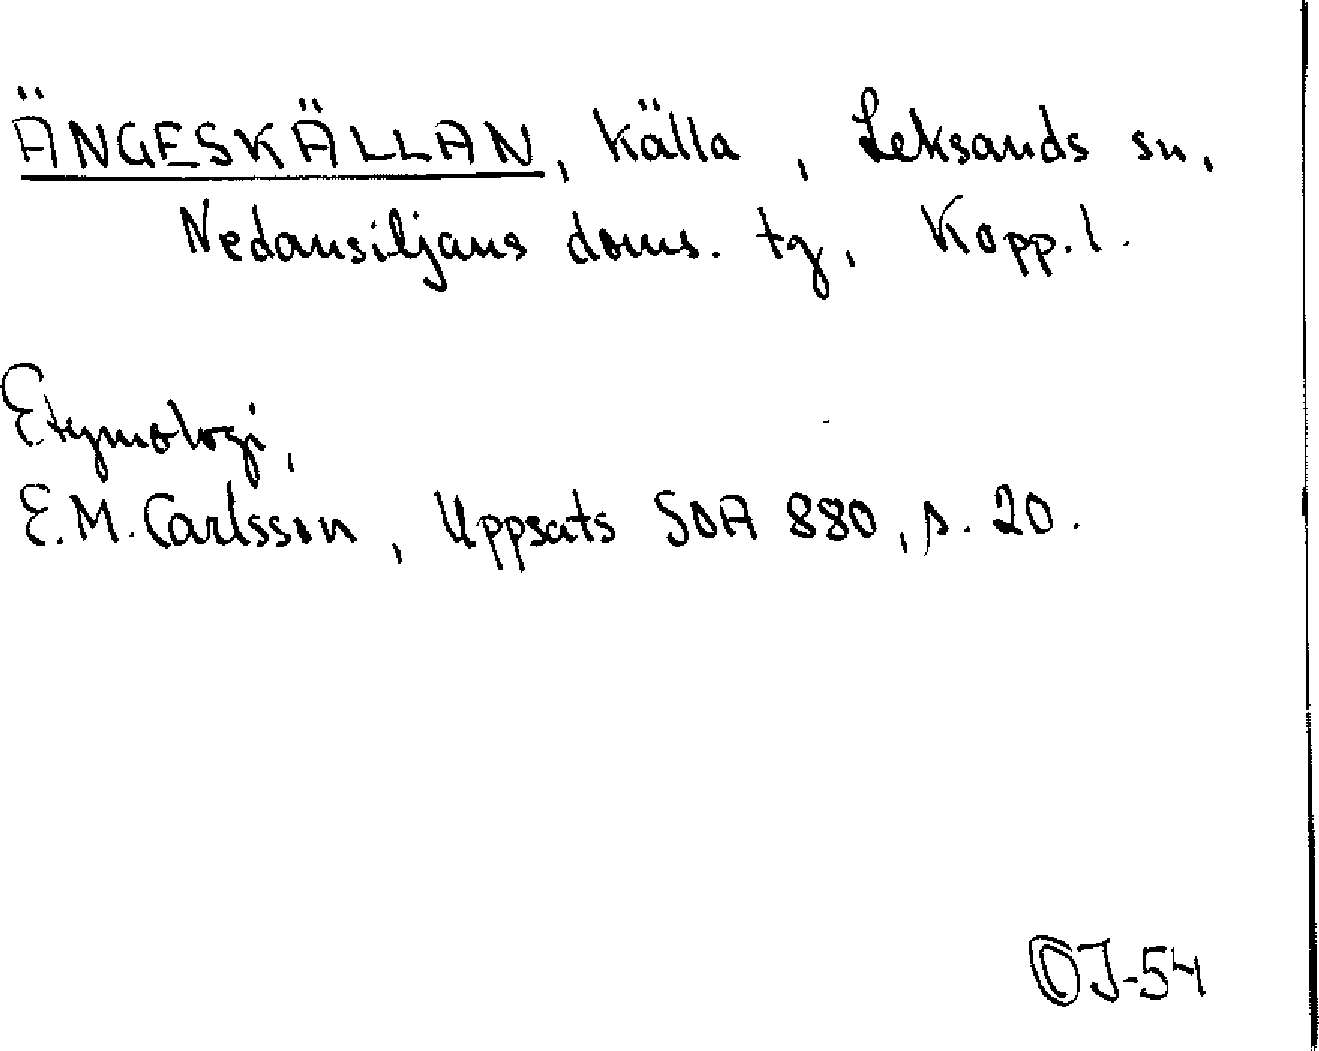 ÄNGESKÄLLAN, källa, Leksands sn,
Nedansiljans doms. tg, Kopp. l.
Etymologi,
E.M. Carlsson, Uppsats SOA 880, s. 20.
©J-54